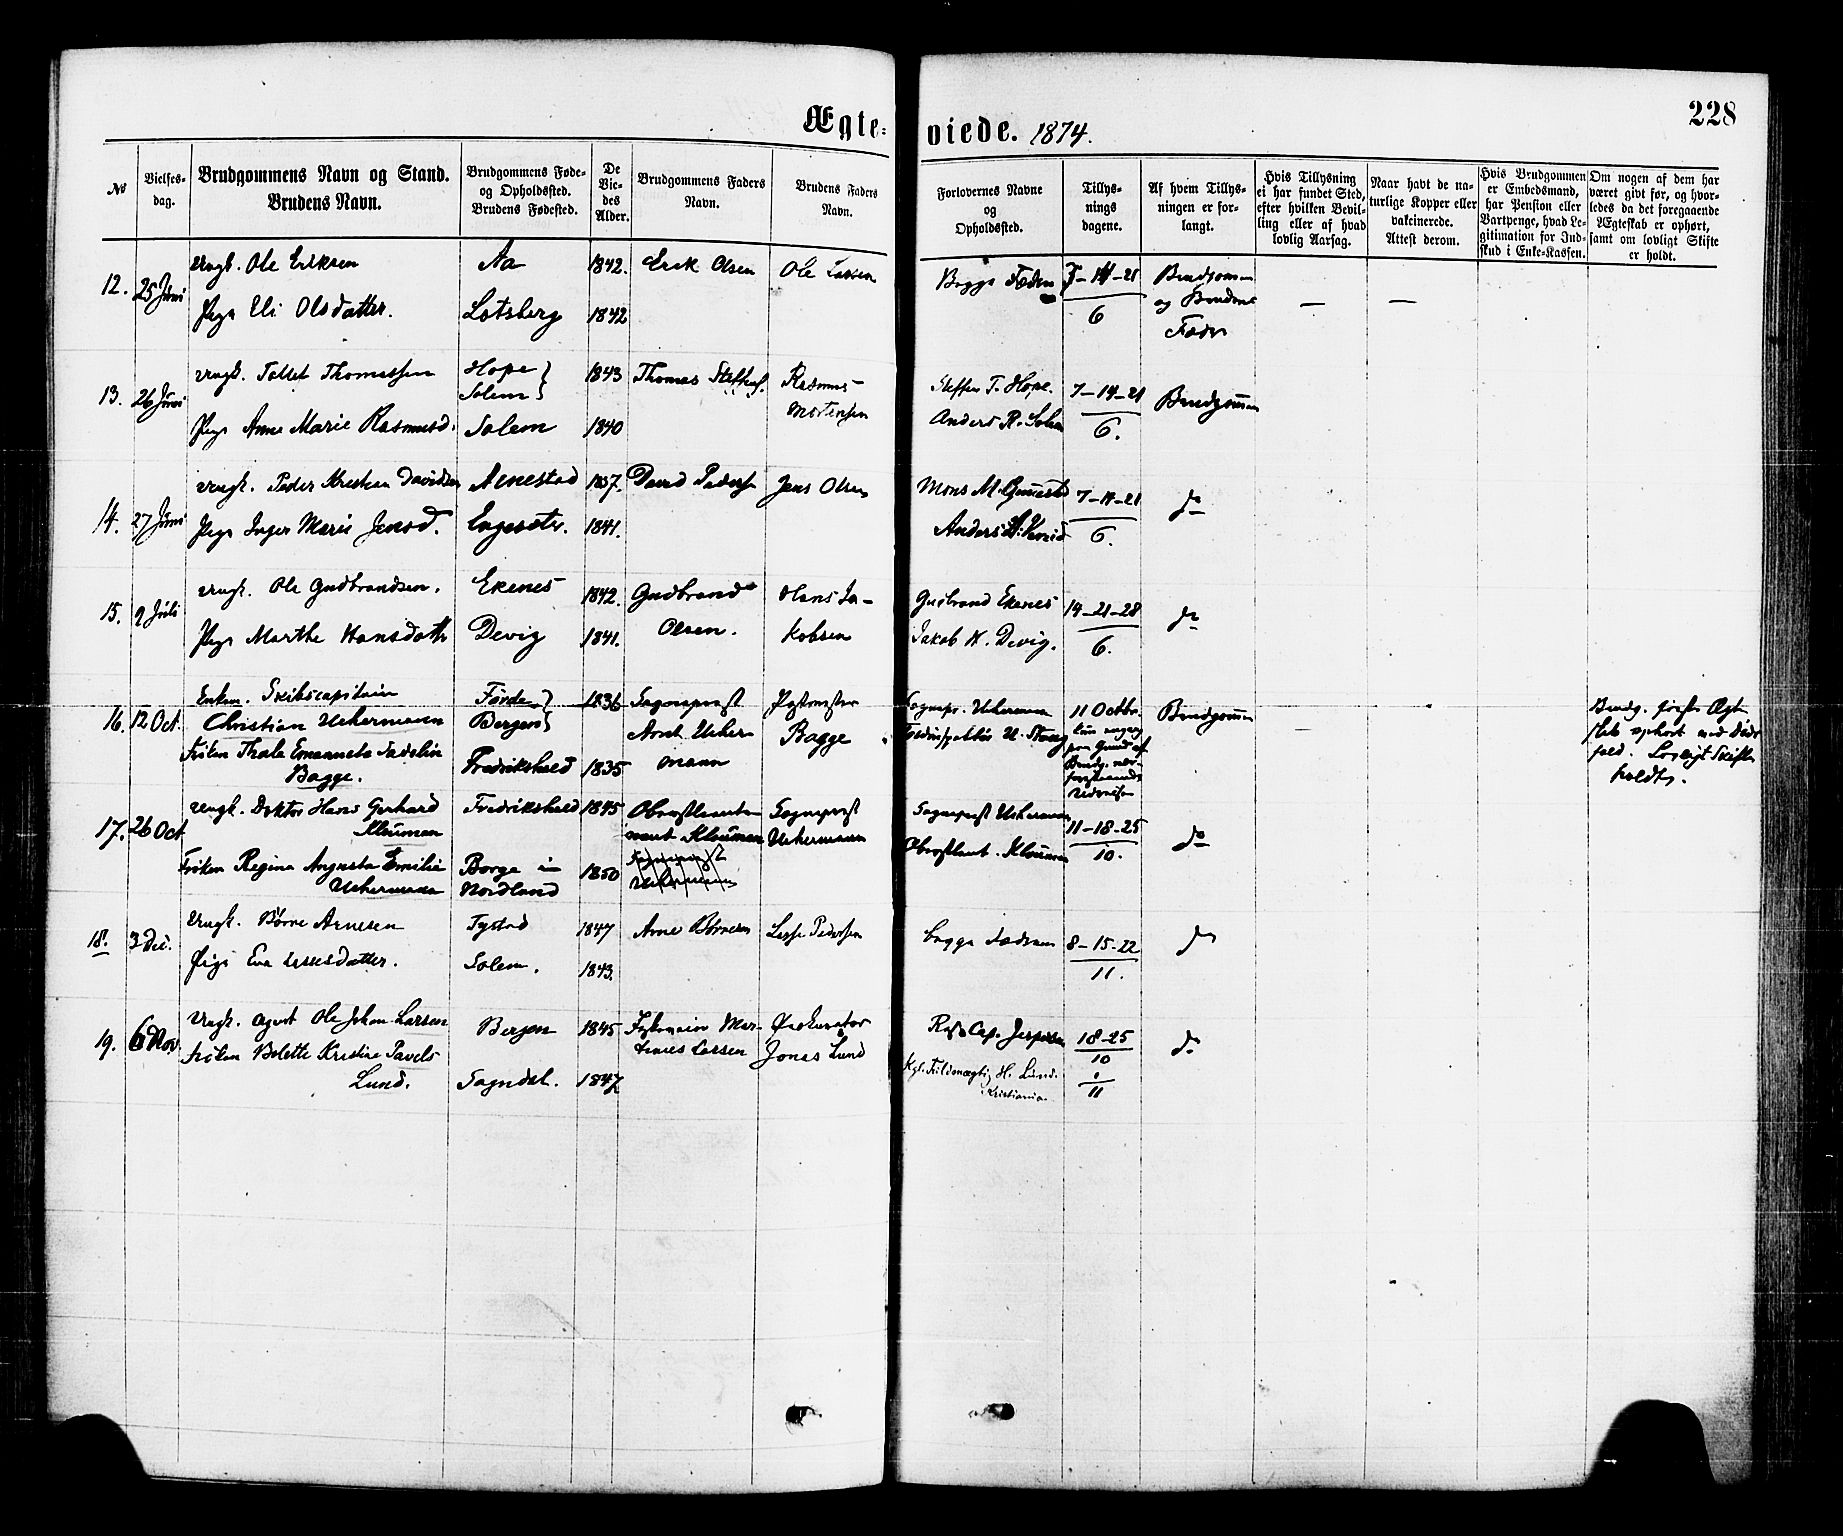 Ægte-
viede. 1874.
228
No
Vielses-
dag.
Brudgommens Navn og Stand.
Brudens Navn.
Brudgommens Føde-
og Opholdssted.
Brudens Fødested.
De
Vie-
des
Alder.
Brudgommens Faders
Navn.
Brudens Faders
Navn.
Forlovernes Navne
og
Opholdssted.
Tillys-
nings
dagene.
Af hvem Tillys-
ningen er for-
langt.
Hvis Tillysning
ei har fundet Sted,
efter hvilken Bevil-
ling eller af hvad
lovlig Aarsag.
Naar havt de na-
turlige Kopper eller
vakcinerede.
Attest derom.
Hvis Brudgommen
er Embedsmand,
har Pension eller
Vartpenge, hvad Le-
gitimation for Ind-
skud i Enke-Kassen.
Om nogen af dem har
været givt før, og hvor-
ledes da det foregaaende
Ægteskab er ophørt,
samt om lovligt Skifte
er holdt.
12. 25 Juni
Ungk. Ole Eriksen
Pige Eli Olsdatter.
Aa
Lotsberg
1842.
1842
Erik Olsen
Ole Larsen
Begges Fædre
7-14-21
6
Brudgommen
og Brudens
Fader
—
—
13. 26 Juni
Ungk. Tollet Thomassen
Pige Anne Marie Rasmusd.
Hope
Solem
Solem
1843
1840
Thomas Steffens.
Rasmus
Mortensen
Steffen T. Hope.
Anders R. Solem
7-14-21
6.
Brudgommen
14. 27 Juni
Ungk. Peder Kristian Davidsen
Pige Inger Marie Jensd.
Arnestad
Engesætr.
1837.
1841.
David Peders.
Jens Olsen
Mons M.
Anders A.
7-14-21
6.
do
15. 9 Juli
Ungk. Ole Gudbrandsen.
Pige Marthe Hansdattr
Ekenes
Devig
1842.
1841.
Gudbrand
Olsen.
Hans Ja-
kobsen
Gudbrand Ekenes
Jakob H. Devig.
14-21-28
6.
do
16. 12 Oct.
Enkem. Skibscapitain
Christian Uchermann
Frøken Thale Emanneta Sadelin
Bagge.
Førde
Bergen
Fredrikshald
1836
1835
Sogneprest
Arnt Ucher-
mann
Postmester
Bagge
Sognepr. Uchermann
11 Octbr.
paa Grund af
Brudg. nær-
forestaaende
Udreise
Brudgommen
—
Brudg. første Ægte-
skab ophørt ved Døds-
fald. Lovligt Skifte
holdt.
17. 26 Oct.
Ungk. Doktor Hans Gerhard
Klouman
Frøken Regina Augusta Emilie
Uchermann
Fredrikshald
Borge in
Nordland
1845
1850
Oberstlieute-
nant Klouman
Sogneprest
Uchermann
Sogneprest
Uchermann
Sogneprest Uchermann
Oberstlaut. Klouman
11-18-25
10.
do
18. 3 Dec.
Ungk. Børre Arnesen
Pige Eva Lassesdatter.
Tystad
Solem.
1847
1843.
Arne Børresen
Lasse Pedersen
Begges Fædre
8-15-22
11.
do
19. 6 Nov.
Ungk. Agent Ole Johan Larsen
Frøken Bolette Kristine Pavels
Lund.
Bergen
Sogndal.
1845
1847
Mar-
tinus Larsen
Prokurator
Jonas Lund
Cap. Jespersen
Kgl. Fuldmægtig H. Lund.
Kristiania.
18-25
10
1
11
do